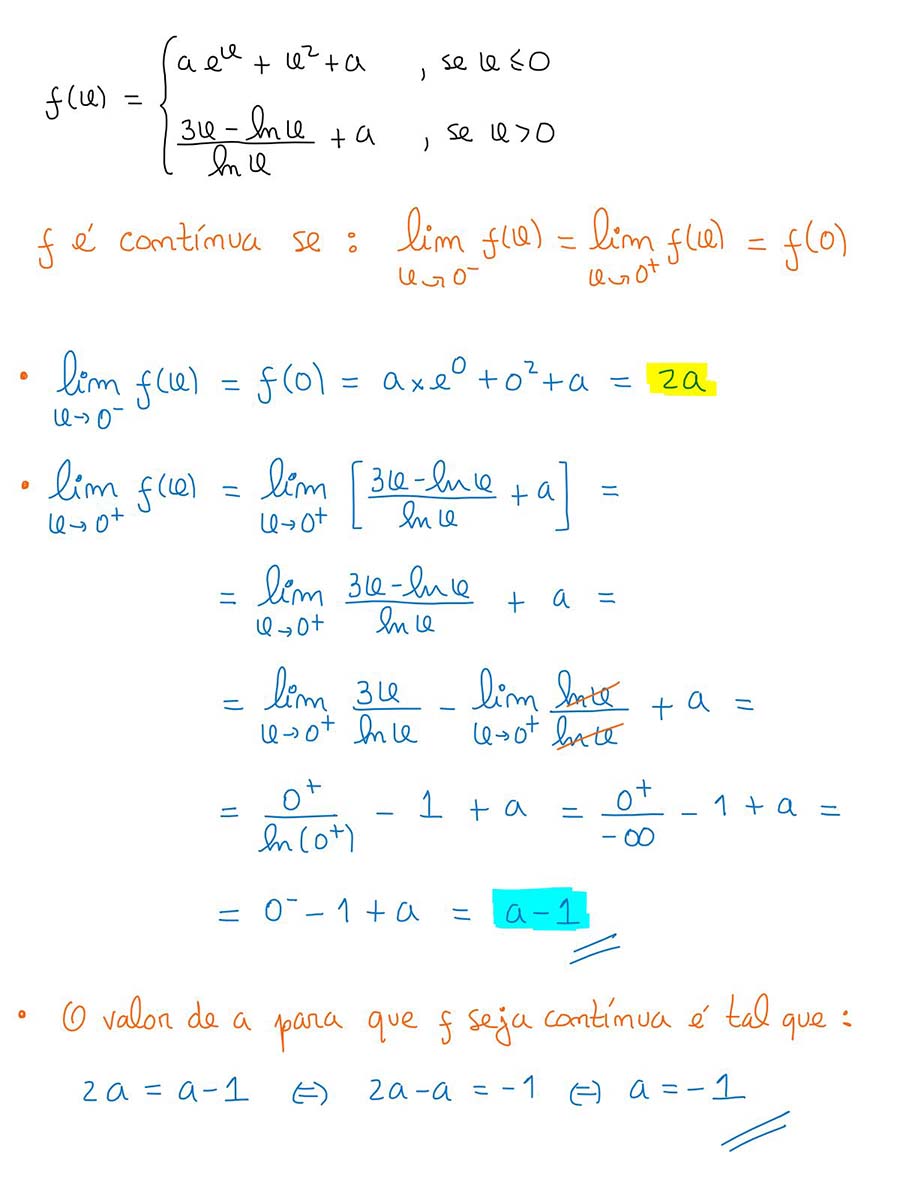 f(x) = { a eˣ + x² + a , se x ≤ 0
(3x - ln x)/(ln x) + a , se x > 0
f é contínua se : lim_{x→0⁻} f(x) = lim_{x→0⁺} f(x) = f(0)
• lim_{x→0⁻} f(x) = f(0) = a × e⁰ + 0² + a = 2a
• lim_{x→0⁺} f(x) = lim_{x→0⁺} [(3x - ln x)/(ln x) + a] =
= lim_{x→0⁺} (3x - ln x)/(ln x) + a =
= lim_{x→0⁺} (3x)/(ln x) - lim_{x→0⁺} (ln x)/(ln x) + a =
= 0⁺/(ln(0⁺)) - 1 + a = 0⁺/(-∞) - 1 + a =
= 0⁻ - 1 + a = a - 1
• O valor de a para que f seja contínua é tal que :
2a = a - 1 ⇔ 2a - a = -1 ⇔ a = -1